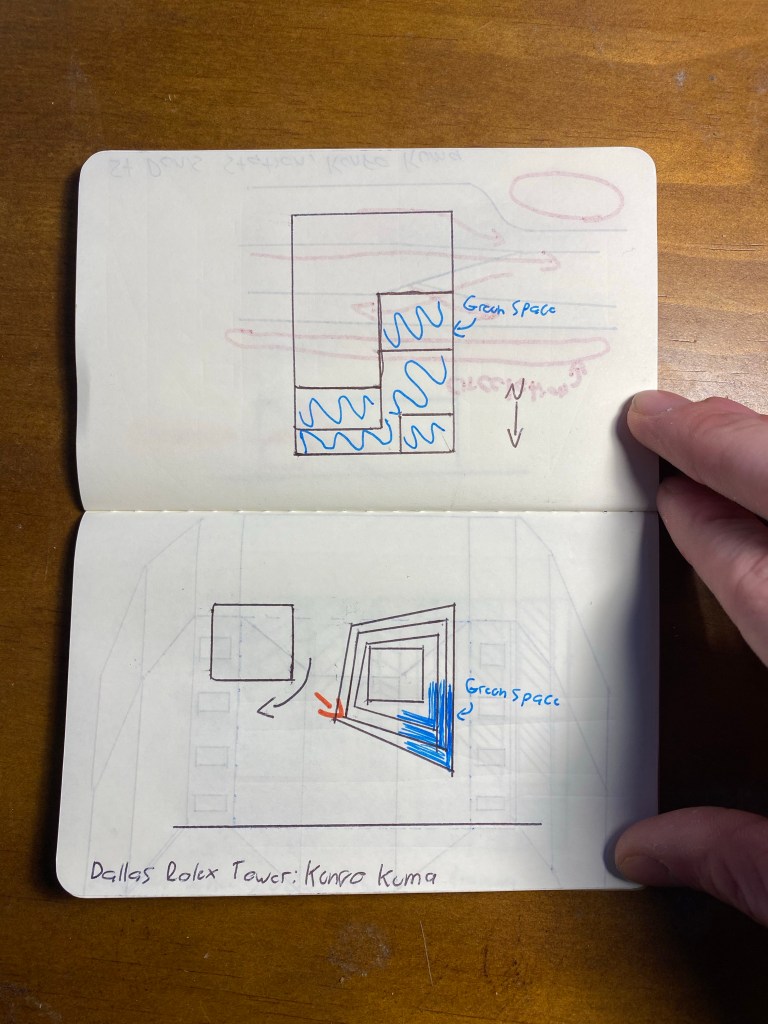 Green Space
N
Green Space
Dallas Rolex Tower: Kengo Kuma